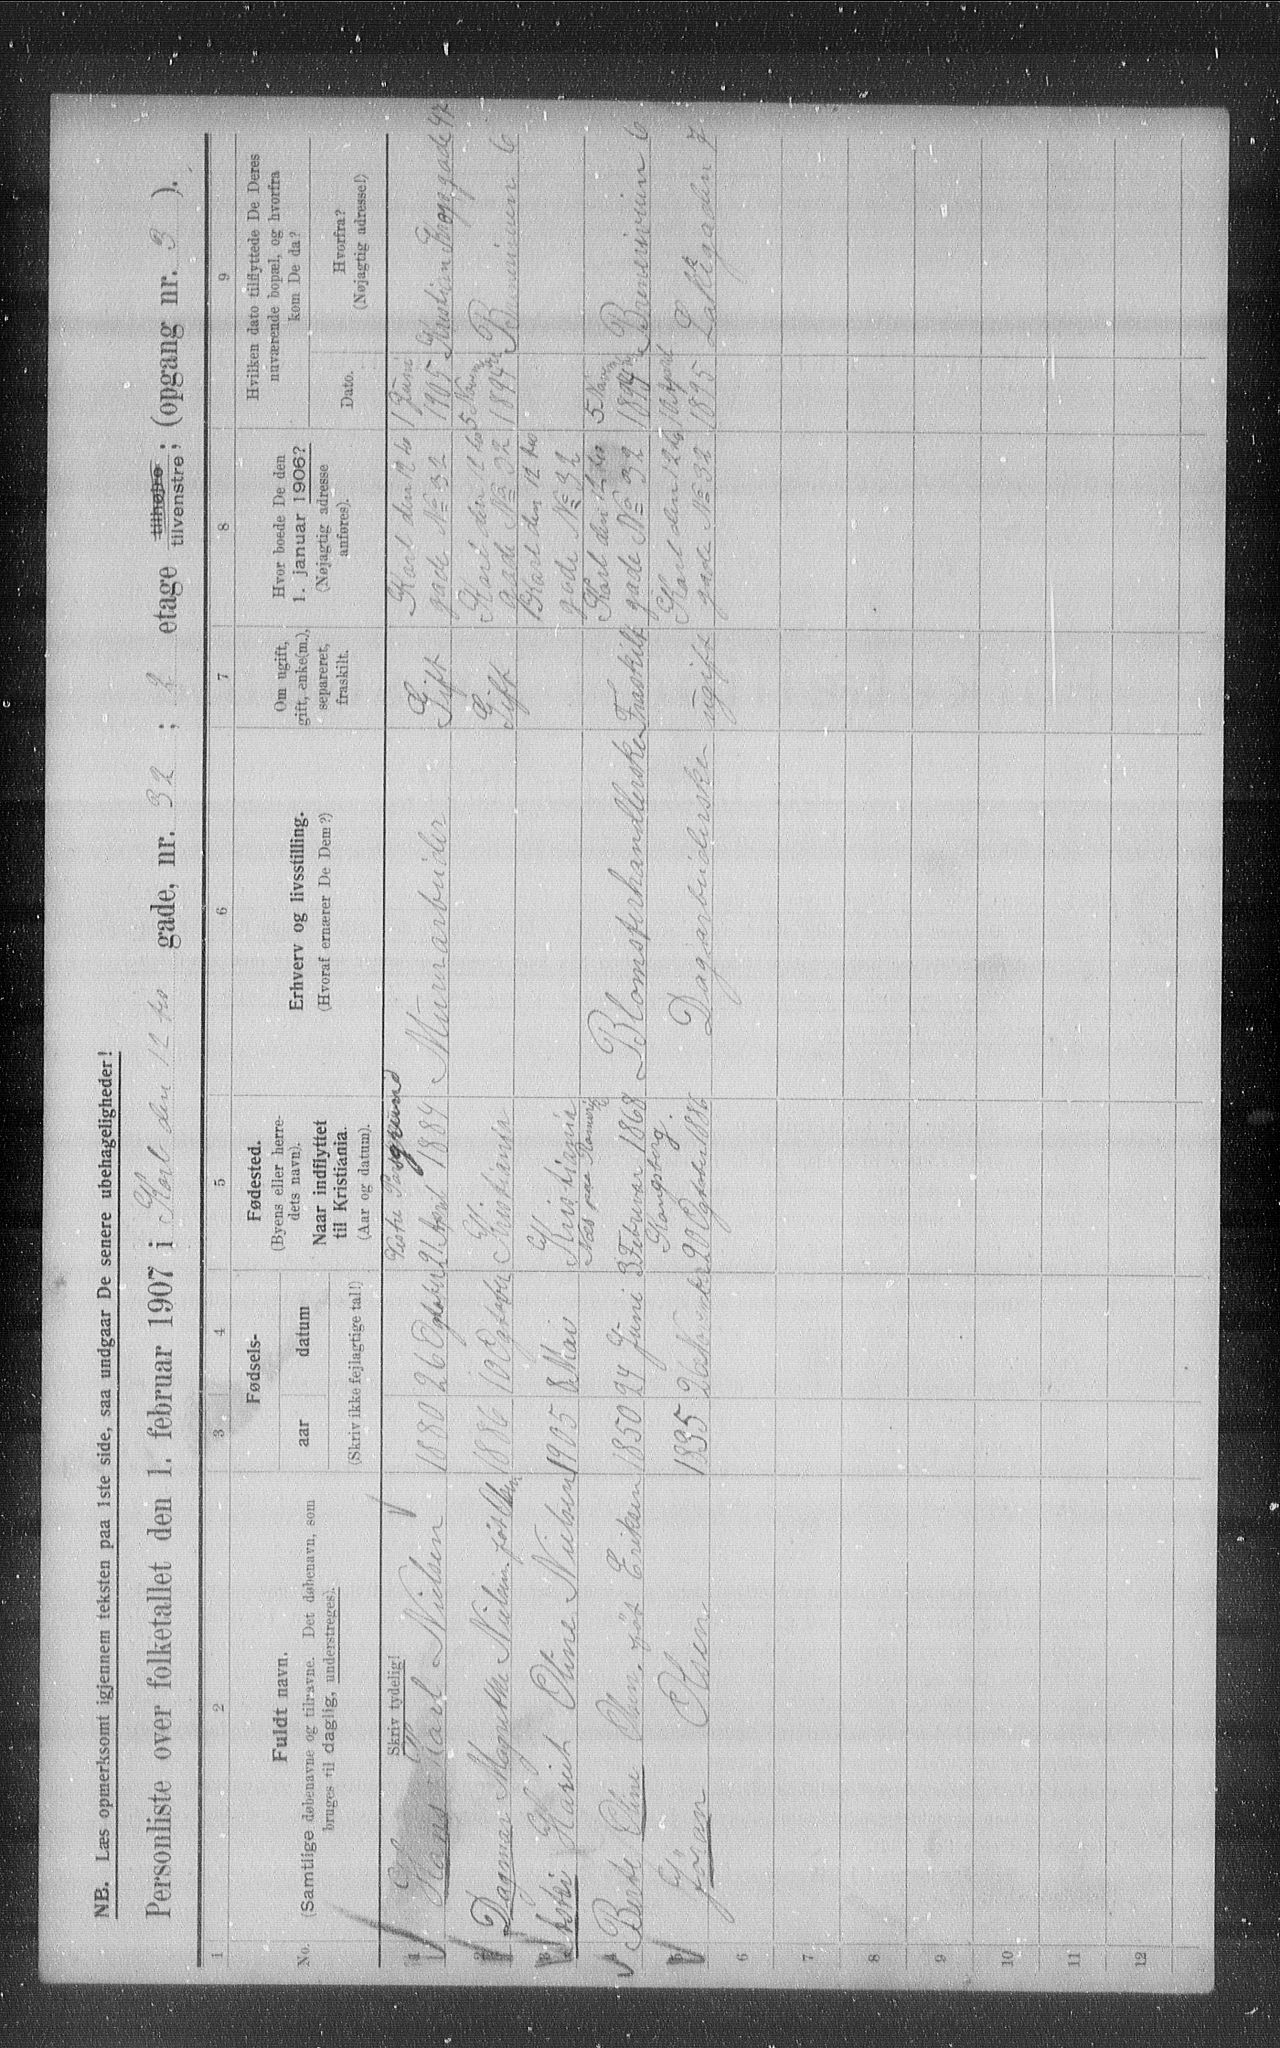 NB. Læs opmerksomt igjennem teksten paa 1ste side, saa undgaar De senere ubehageligheder!
Personliste over folketallet den 1. februar 1907 i Karl den 12 tes gade, nr. 32 ; 2 etage tilhøjre tilvenstre; (opgang nr. 3 ).
1 2 3 4 5 6 7 8 9
No.
Fuldt navn.
(Samtlige døbenavne og tilnavne. Det døbenavn, som
bruges til daglig, understreges).
Fødsels-
aar datum
(Skriv ikke fejlagtige tal!)
Fødested.
(Byens eller herre-
dets navn).
Naar indflyttet
til Kristiania.
(Aar og datum).
Erhverv og livsstilling.
(Hvoraf ernærer De Dem?)
Om ugift,
gift, enke(m.),
separeret,
fraskilt.
Hvor boede De den
1. januar 1906?
(Nøjagtig adresse
anføres).
Hvilken dato tilflyttede De Deres
nuværende bopæl, og hvorfra
kom De da?
Dato.
Hvorfra?
(Nøjagtig adresse!)
Skriv tydelig!
1 Hans Karl Nielsen 1880 26 21 April 1884 Murarbeider Gift Karl den 12 tes gade No 32 1 Juni 1905 Kristian gade 47
2 Dagmar Magrethe Nielsen født 1886 10 Kristiania Gift Karl den 12 tes gade No 32 5 1894 6
3 Hariet Otine Nielsen 1905 8 Mai Kristiania Karl den 12 tes gade No 32
4 Berte Oline Olsen født Eriksen 1850 24 Juni Nes paa Romerig 3 Februar 1868 Blomsterhandlerske Fraskilt Karl den 12 tes gade No 32 5 1894 6
5 Olsen 1835 Kongsberg 20 1886 Dagarbeiderske ugift Karl den 12 tes gade No 32 April 1895 Lakkegaden 7
6
7
8
9
10
11
12